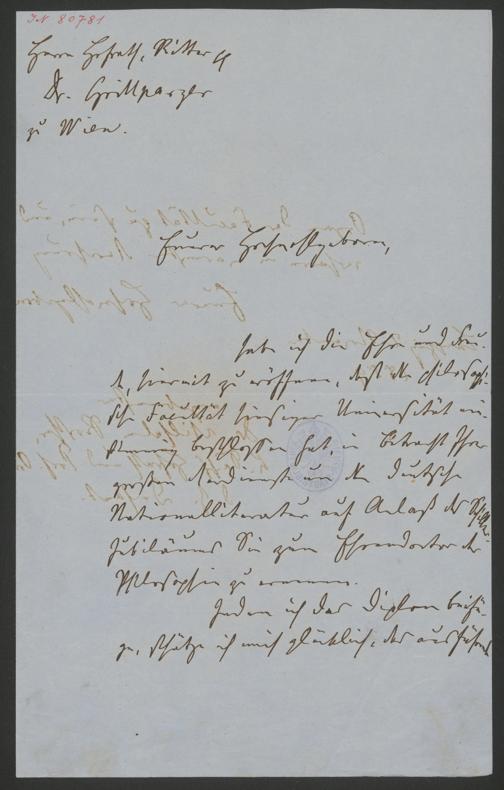 IN 80781
Herrn Hofrath, Ritter
Dr. Grillparzer
zu Wien.
Euerer Hochwohlgeboren,
habe ich die Ehre und Freu-
de, hiermit zu eröffnen, daß die philosophi-
sche Facultät hiesiger Universität ein-
stimmig beschlossen hat, in Betracht Ihrer
großen Verdienste um die deutsche
Nationalliteratur auf Anlaß des Schiller-
Jubiläums Sie zum Ehrendoctor der
Philosophie zu ernennen.
Indem ich das Diplom beifü-
ge, schätze ich mich glücklich, der